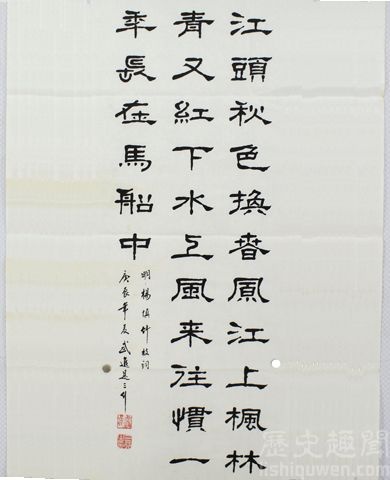 江頭秋色換春風江上楓林
青又紅下水上風来往慣一
年長在馬船中
明楊慎竹枝詞
庚辰年夏武
歷史趣聞
lishiquwen.com